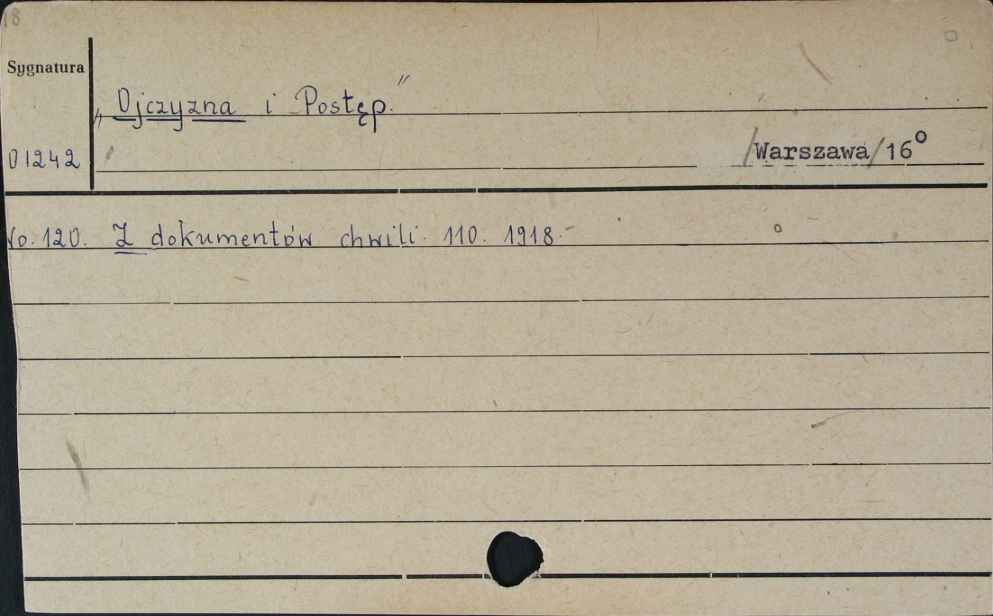 18
Sygnatura
„Ojczyzna i Postęp."
01242
/Warszawa/ 16°
No. 120. Z dokumentów chwili. 110. 1918.-